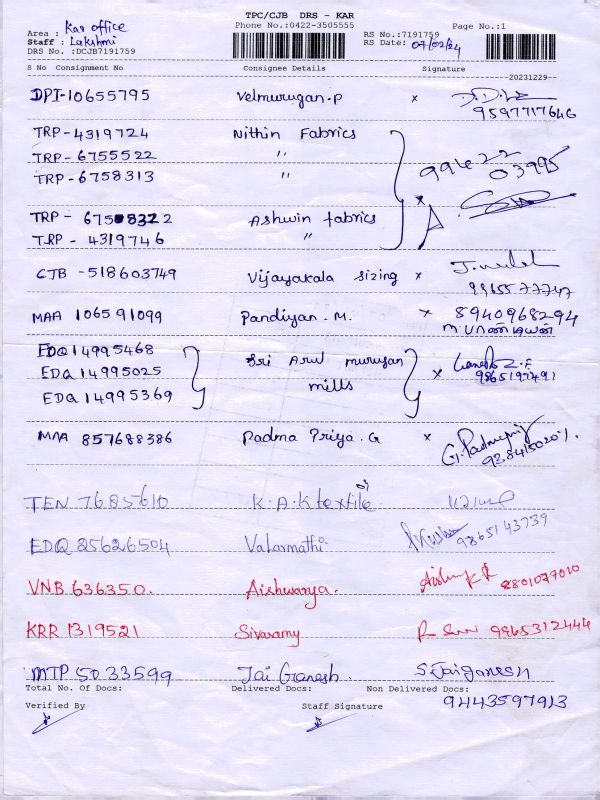 TPC/CJB DRS - KAR
Phone No.:0422-3505555
Page No.:1
Area : Kar office
Staff : Lakshmi
DRS No. :DCJB7191759
RS No.:7191759
RS Date: 07/02/24
S No Consignment No Consignee Details Signature
20231229
DPI-10655795 Velmurugan.P x
9597717646
TRP - 4319724 Nithin Fabrics
TRP - 6755522 "
TRP - 6758313 " 99422 03995
x
TRP - 6758322 Ashwin fabrics
TRP - 4319746 "
CTB - 518603749 Vijayakala sizing x
9965577747
MAA 106591099 Pandiyan . M. x 8940968294
m.பாண்டியன்
EDQ 14995468 Sri Arul murugan
EDQ 14995025 mills x 9865197491
EDQ 14995369
MAA 857688386 Padma Priya . G x G. Padmapriya
TEN 7685610 K.A.K textile
EDQ 25626504 Valarmathi 9865143739
VNB 636350. Aishwarya.
KRR 1319521 Sivaramy 9965312444
MTP 5033599 Jai Ganesh. S. Jaiganesh
Total No. Of Docs: Delivered Docs: Non Delivered Docs:
9443597913
Verified By Staff Signature